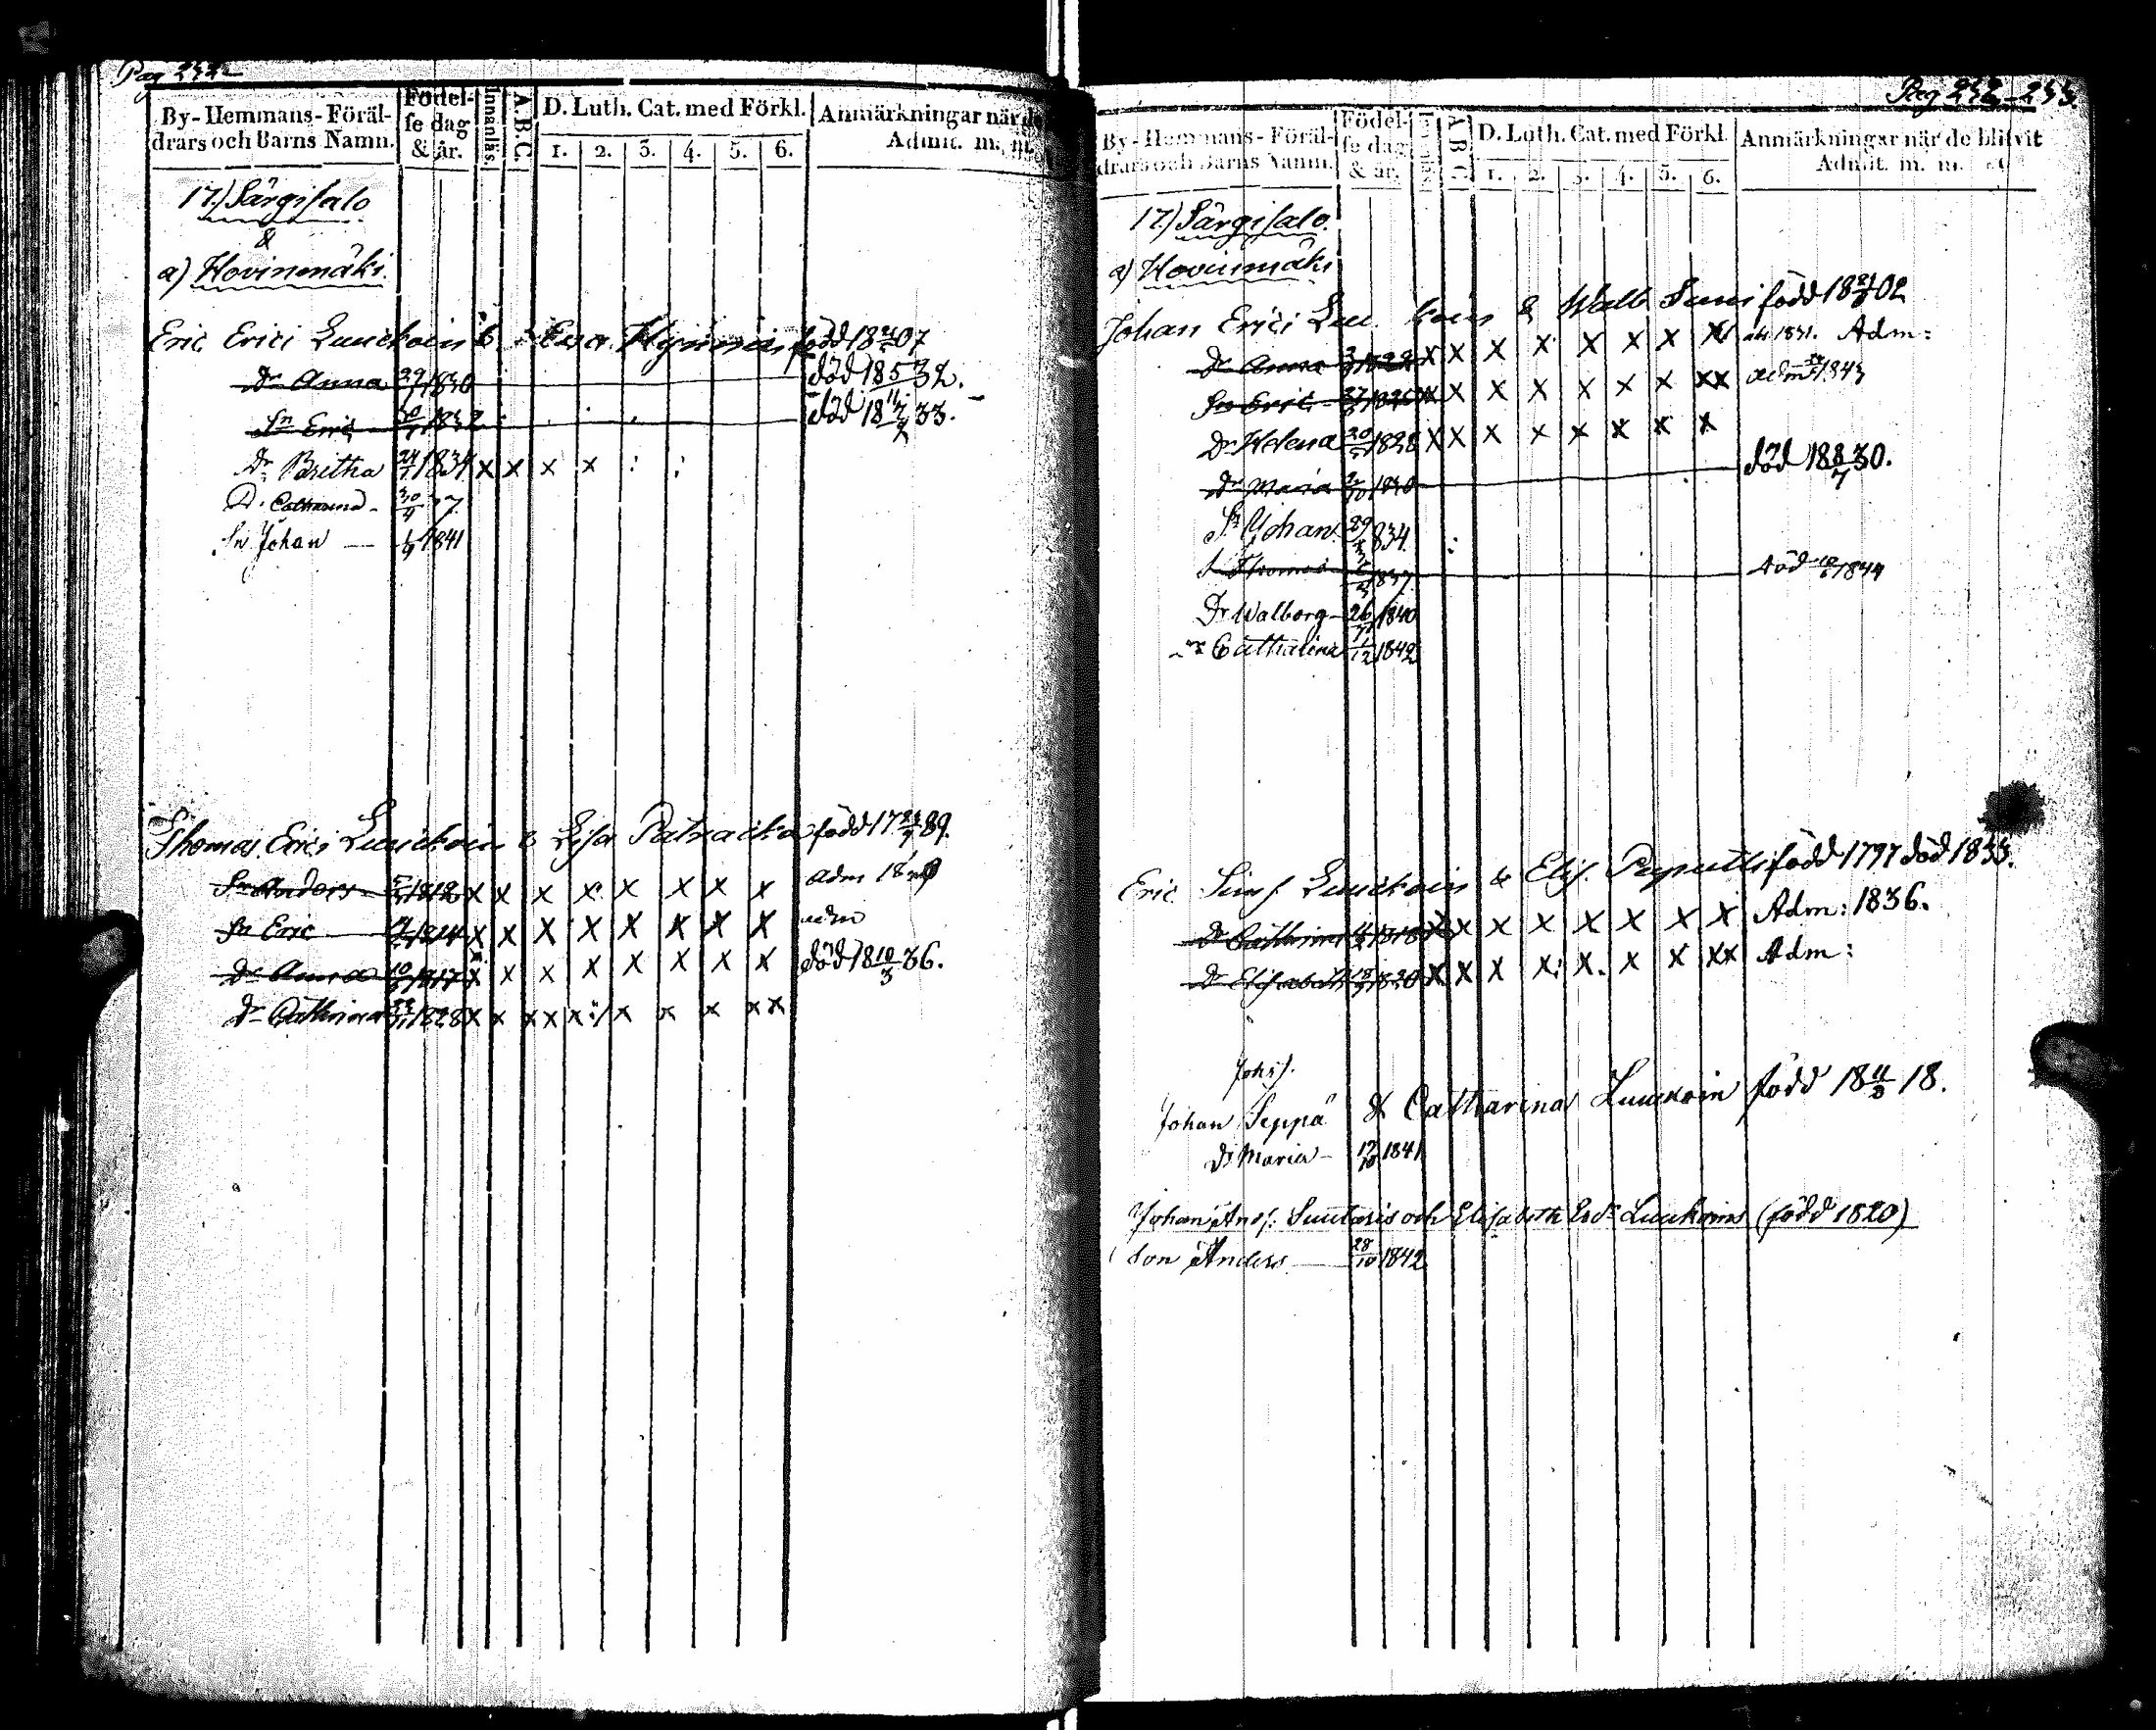 Pag 232
By-Hemmans-Föräl-
drars och Barns Namn.
Födel-
se dag
& år.
Innanläs.
A.B.C.
D. Luth. Cat. med Förkl.
1. 2. 3. 4. 5. 6.
Anmärkningar när de
Admit. m. m.
17.) Särgisalo
&
a) Hovinmäki
Eric Erici Luuckoin & Eva Hynninen född 18 07
Dr Anna 29/1830 död 18 5 32.
Sn Eric 1832 död 18 33.
Dr Britha 24/1834 x x x x : :
D. Catharina 30/4 37
Sn Johan 1841
Thomas Erici Luuckoin & Lisa Ratzacka född 17 89.
Sn Anders 1812 x x x x x x x x adm
Sn Eric 1814 x x x x x x x x adm
Dr Anna 10/1817 x x x x x x x x död 18 10/3 36.
Dr Cathrina 1828 x x x x x :/ x x x x x
Pag 232-233.
By-Hemmans-Föräl-
drars och Barns Namn.
Födel-
se dag
& år.
A B C
D. Luth. Cat. med Förkl.
1. 2. 3. 4. 5. 6.
Anmärkningar när de blifvit
Admit. m. m.
17.) Särgisalo.
a) Hovinmäki
Johan Erici Luuckoin & Walb. Suni född 18 02
Dr Anna x x x x x x x x 1831. Adm:
Sn Eric x x x x x x x x x adm 1843
Dr Helena 20/1828 x x x x x x x x
Dr Maria 2/10 1830 död 18 8/7 30.
Sn Johan 29/ 834 :
S Thomas 1837 död 1844
Dr Walborg 26/ 1840
Cathalina 1/12 1842
Eric Sims. Luuckoin & Elis. Paputti född 1797 död 1833.
Dr Cathrina 1818 x x x x x x x x Adm: 1836.
Dr Elisabeth 1820 x x x x: x. x x x x Adm:
Johs.
Johan Seppä & Catharina Luukoin född 18 11/3 18.
Dr Maria 17/10 1841
Johan Ands: Suutaris och Elisabeth Luukoin (född 1820)
Son Anders 28/10 1842